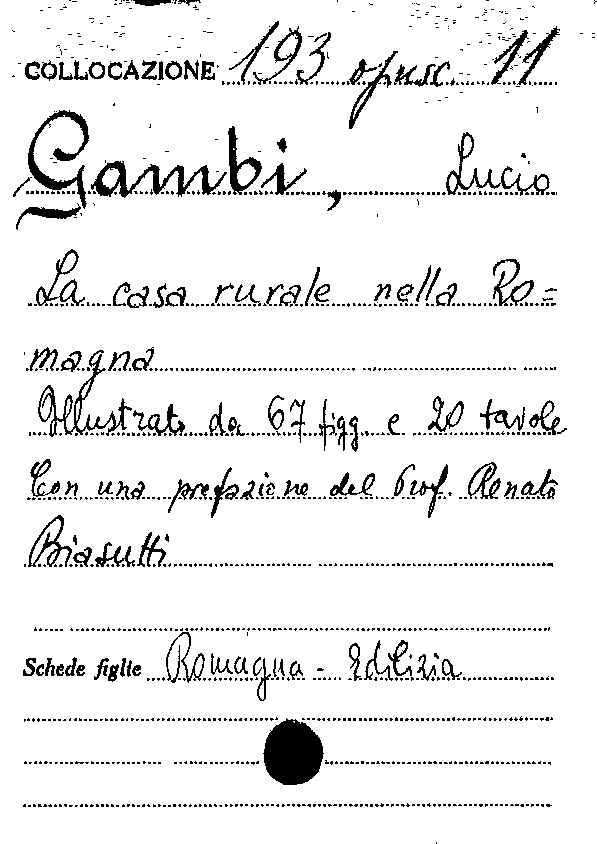 COLLOCAZIONE 193 opusc. 11
Gambi, Lucio
La casa rurale nella Ro=
magna
Illustrato da 67 figg. e 20 tavole
Con una prefazione del Prof. Renato
Biasutti
Schede figlie Romagna - Edilizia